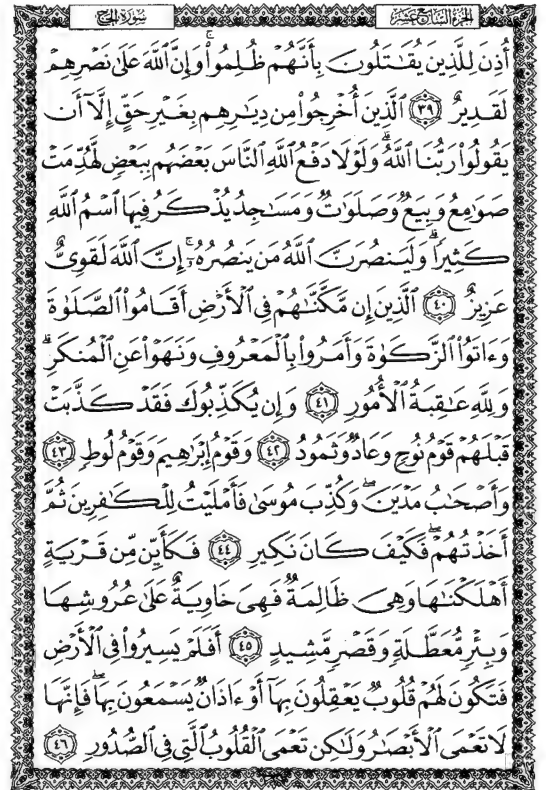 الجزء السابع عشر
سورة الحج
أُذِنَ لِلَّذِينَ يُقَٰتَلُونَ بِأَنَّهُمْ ظُلِمُوا۟ ۚ وَإِنَّ ٱللَّهَ عَلَىٰ نَصْرِهِمْ
لَقَدِيرٌ ٣٩ ٱلَّذِينَ أُخْرِجُوا۟ مِن دِيَٰرِهِم بِغَيْرِ حَقٍّ إِلَّآ أَن
يَقُولُوا۟ رَبُّنَا ٱللَّهُ ۗ وَلَوْلَا دَفْعُ ٱللَّهِ ٱلنَّاسَ بَعْضَهُم بِبَعْضٍ لَّهُدِّمَتْ
صَوَٰمِعُ وَبِيَعٌ وَصَلَوَٰتٌ وَمَسَٰجِدُ يُذْكَرُ فِيهَا ٱسْمُ ٱللَّهِ
كَثِيرًا ۗ وَلَيَنصُرَنَّ ٱللَّهُ مَن يَنصُرُهُۥٓ ۗ إِنَّ ٱللَّهَ لَقَوِىٌّ
عَزِيزٌ ٤٠ ٱلَّذِينَ إِن مَّكَّنَّٰهُمْ فِى ٱلْأَرْضِ أَقَامُوا۟ ٱلصَّلَوٰةَ
وَءَاتَوُا۟ ٱلزَّكَوٰةَ وَأَمَرُوا۟ بِٱلْمَعْرُوفِ وَنَهَوْا۟ عَنِ ٱلْمُنكَرِ ۗ
وَلِلَّهِ عَٰقِبَةُ ٱلْأُمُورِ ٤١ وَإِن يُكَذِّبُوكَ فَقَدْ كَذَّبَتْ
قَبْلَهُمْ قَوْمُ نُوحٍ وَعَادٌ وَثَمُودُ ٤٢ وَقَوْمُ إِبْرَٰهِيمَ وَقَوْمُ لُوطٍ ٤٣
وَأَصْحَٰبُ مَدْيَنَ ۖ وَكُذِّبَ مُوسَىٰ فَأَمْلَيْتُ لِلْكَٰفِرِينَ ثُمَّ
أَخَذْتُهُمْ ۖ فَكَيْفَ كَانَ نَكِيرِ ٤٤ فَكَأَيِّن مِّن قَرْيَةٍ
أَهْلَكْنَٰهَا وَهِىَ ظَالِمَةٌ فَهِىَ خَاوِيَةٌ عَلَىٰ عُرُوشِهَا
وَبِئْرٍ مُّعَطَّلَةٍ وَقَصْرٍ مَّشِيدٍ ٤٥ أَفَلَمْ يَسِيرُوا۟ فِى ٱلْأَرْضِ
فَتَكُونَ لَهُمْ قُلُوبٌ يَعْقِلُونَ بِهَآ أَوْ ءَاذَانٌ يَسْمَعُونَ بِهَا ۖ فَإِنَّهَا
لَا تَعْمَى ٱلْأَبْصَٰرُ وَلَٰكِن تَعْمَى ٱلْقُلُوبُ ٱلَّتِى فِى ٱلصُّدُورِ ٤٦